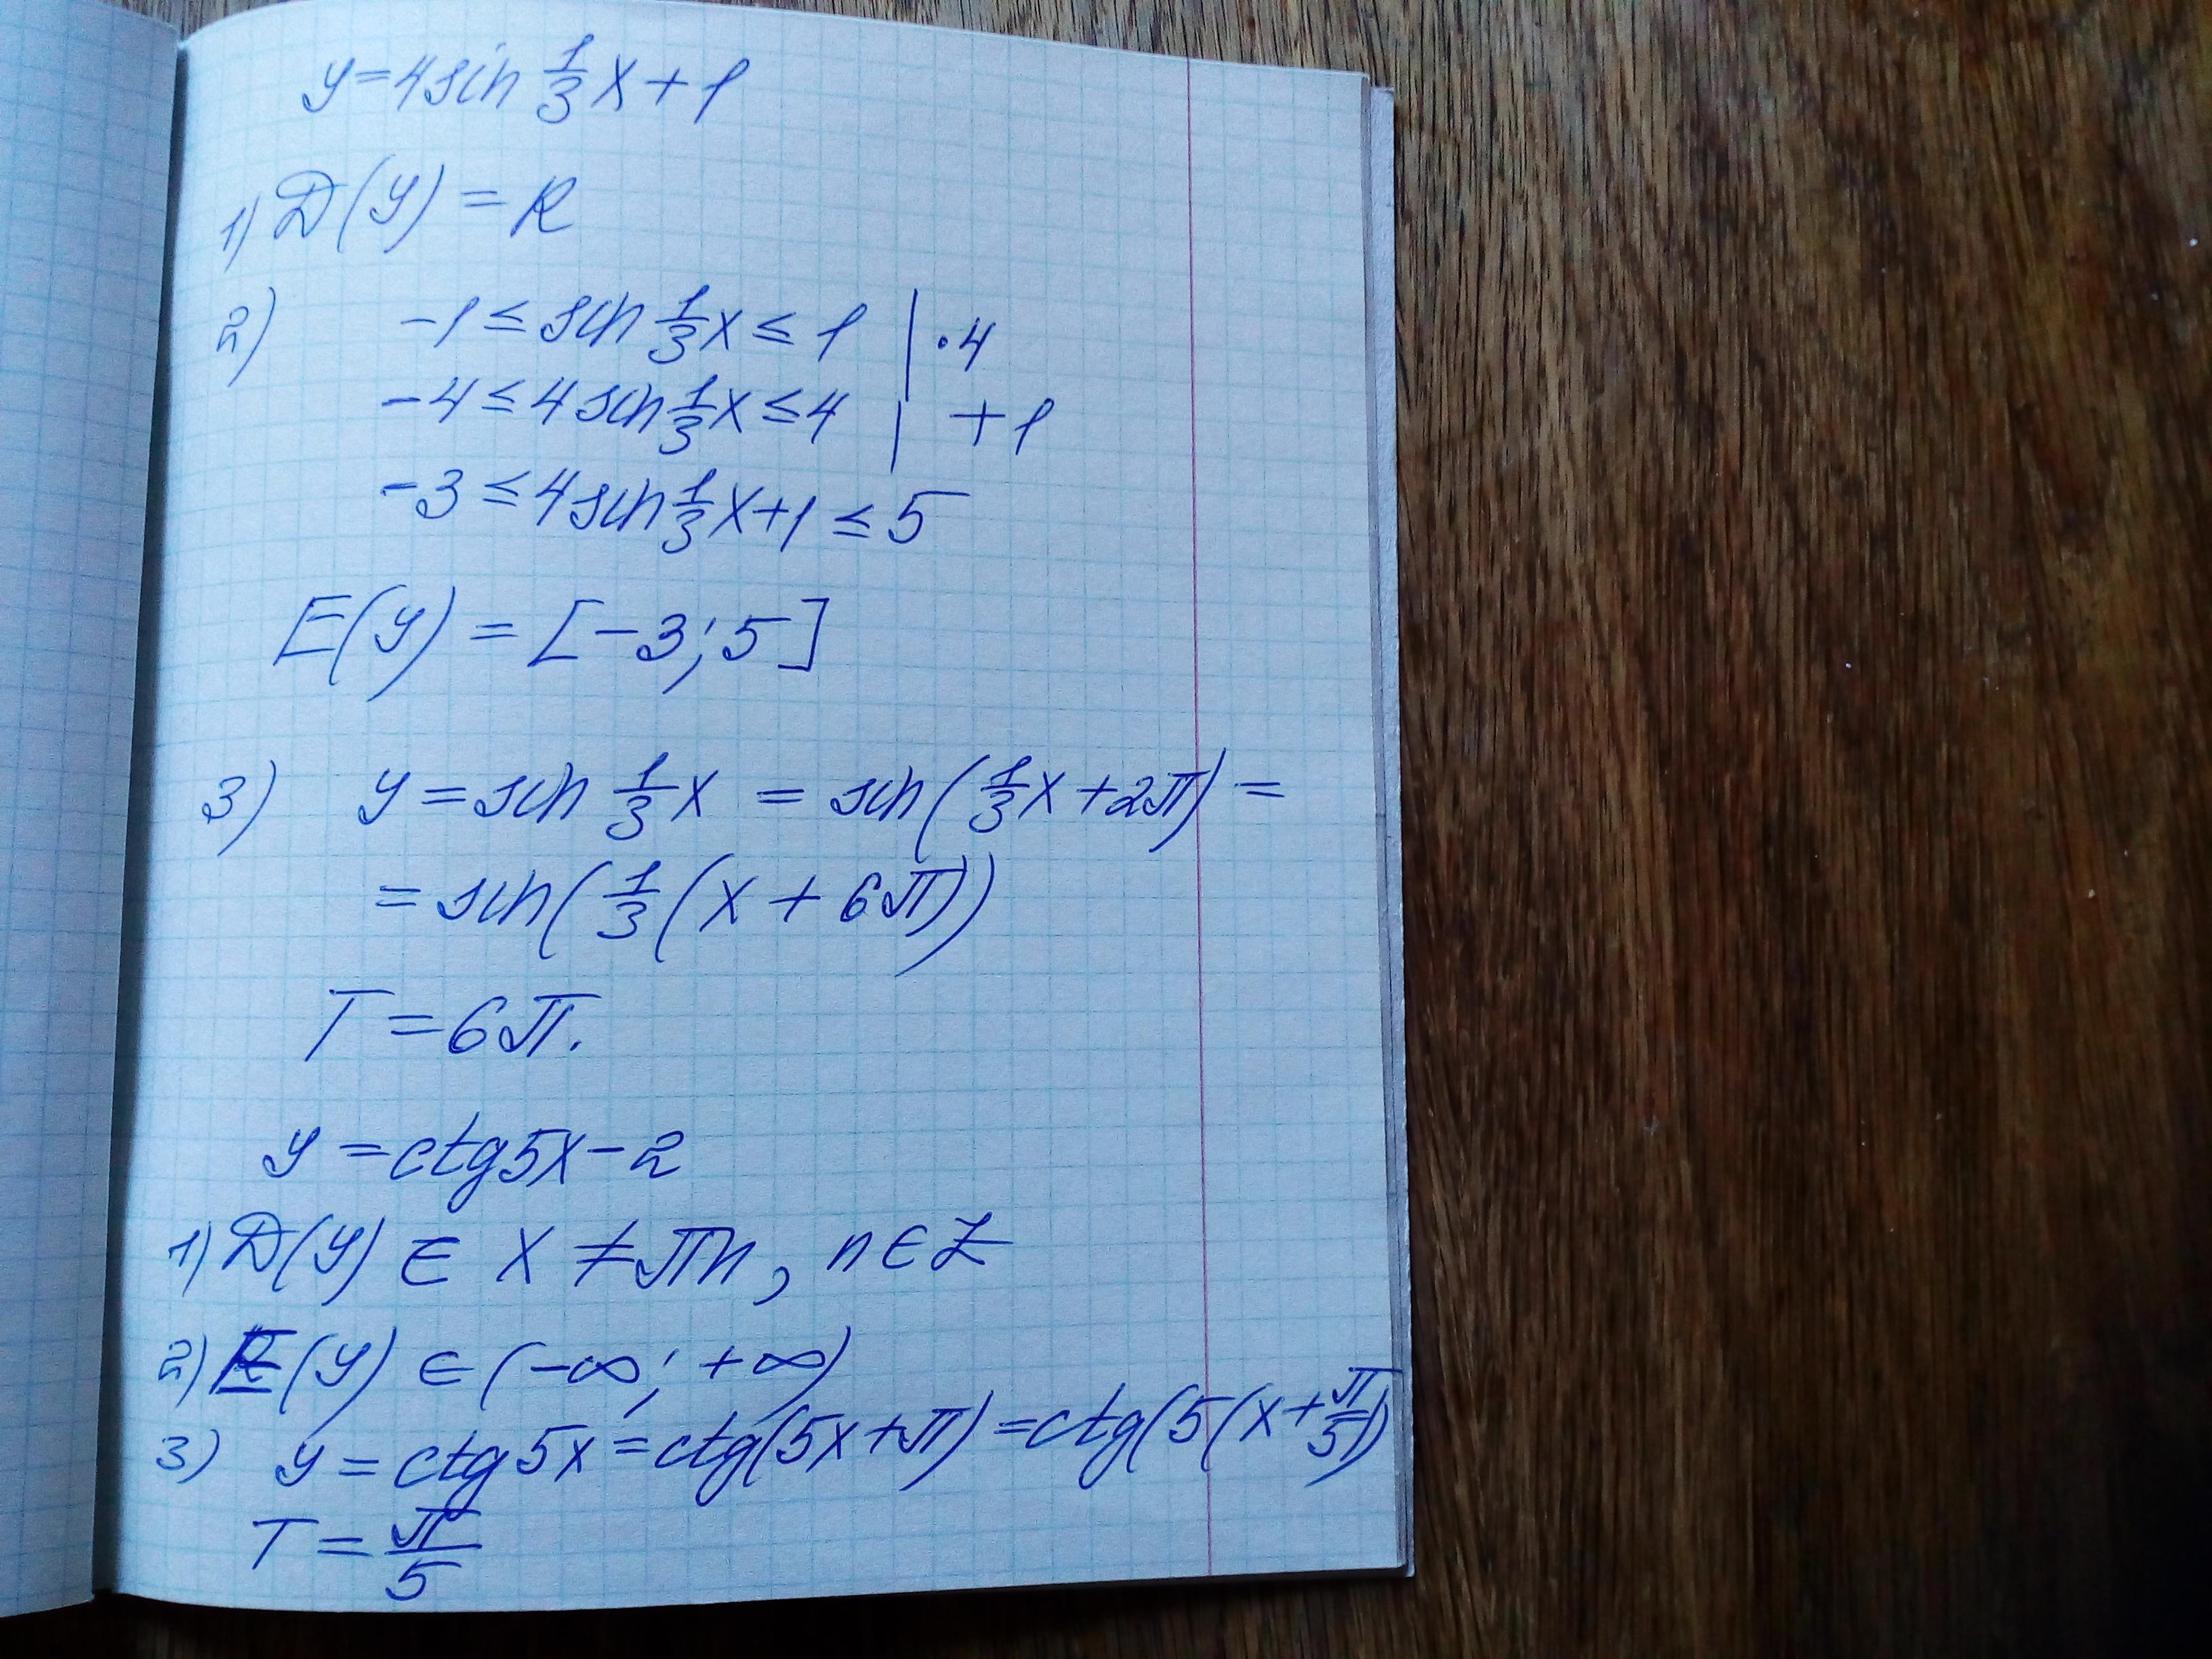 y=4sin 1/3 x+1
1) D(y)=R
2) -1≤sin 1/3 x≤1 | ·4
-4≤4sin 1/3 x≤4 | +1
-3≤4sin 1/3 x+1≤5
E(y)=[-3;5]
3) y=sin 1/3 x = sin(1/3 x+2π)=
=sin(1/3(x+6π))
T=6π.
y=ctg5x-2
1) D(y)∈ x≠πn, n∈Z
2) E(y)∈(-∞;+∞)
3) y=ctg5x=ctg(5x+π)=ctg(5(x+π/5))
T=π/5